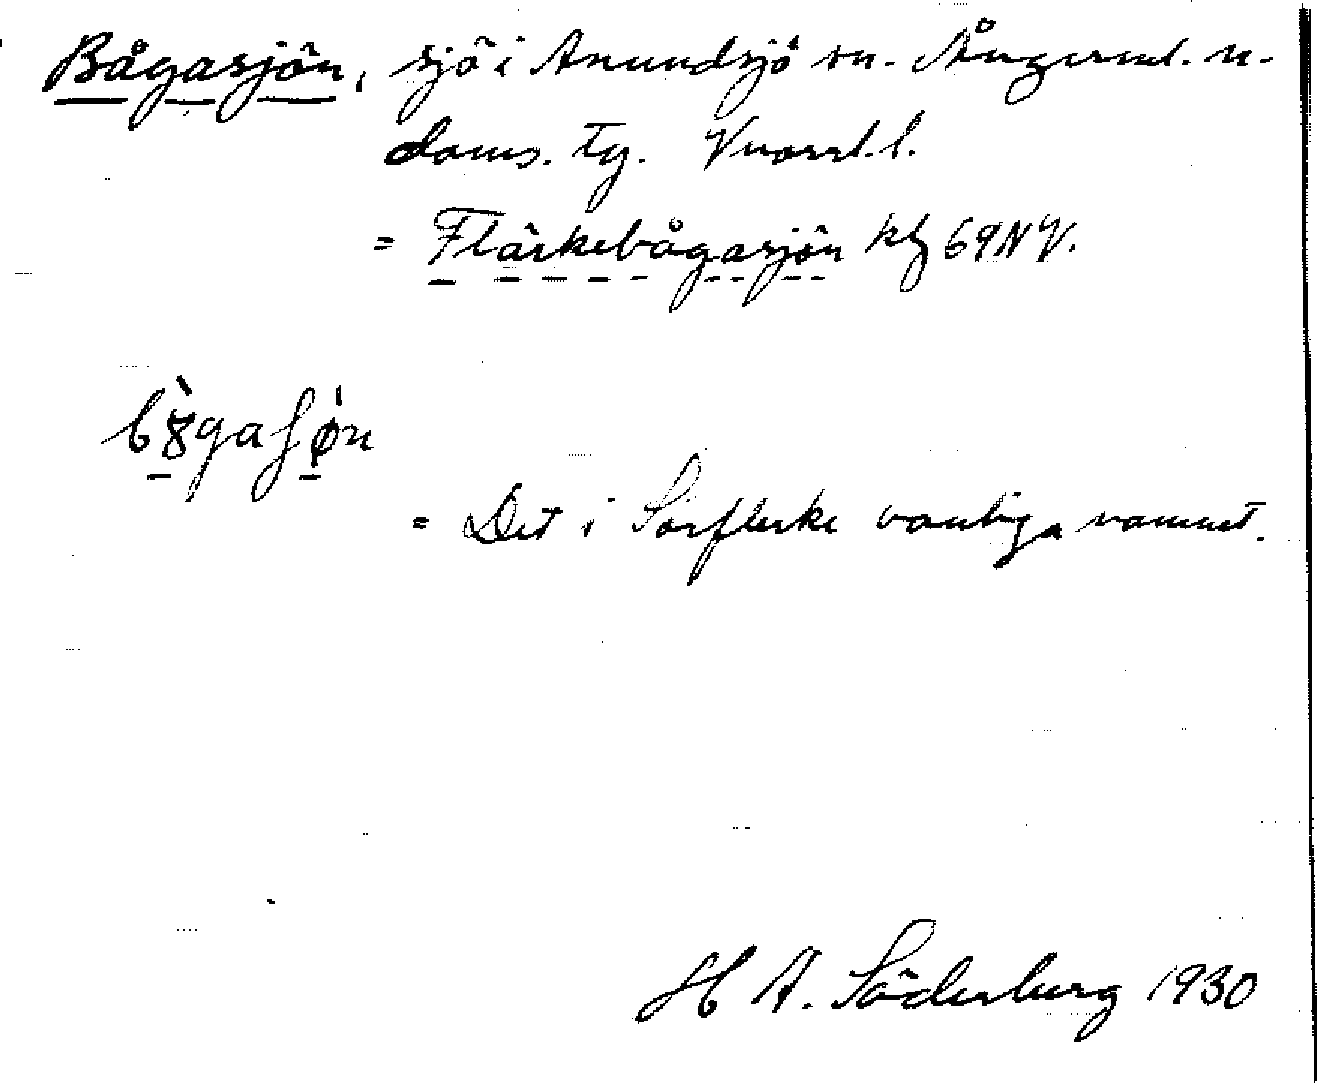 Bågasjön, sjö i Anundsjö sn. Ångerml. n.
doms. tg. Vnorrl. l.
= Flärkebågasjön kbl 69 NV.
= Det i Sörflärke vanliga namnet.
H A. Söderberg 1930